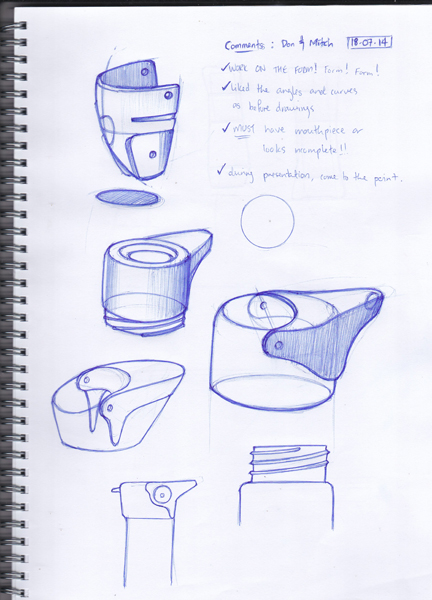 Comments : Don & Mitch 18.07.14
✓ WORK ON THE FORM! Form! Form!
✓ Liked the angles and curves
as before drawings
✓ MUST have mouthpiece or
looks incomplete!!
✓ during presentation, come to the point.